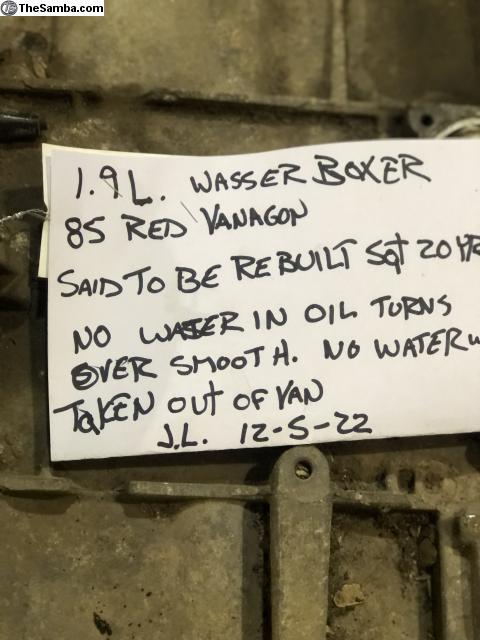 TheSamba.com
1.9L. WASSERBOXER
85 RED VANAGON
SAID TO BE REBUILT SAT 20 YR
NO WATER IN OIL TURNS
OVER SMOOTH. NO WATER W
TAKEN OUT OF VAN
J.L. 12-5-22